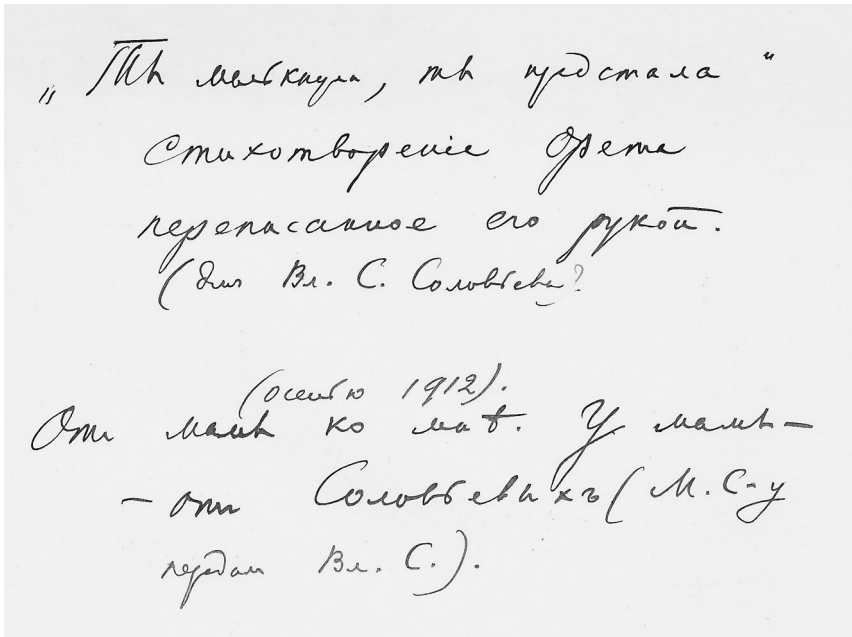 „Ты мелькнула, ты предстала“
Стихотвореніе Фета
переписанное его рукой.
(для Вл. С. Соловьева?
(осенью 1912).
От мамы ко мнѣ. У мамы —
— от Соловьевыхъ (М. С-у
передал Вл. С.).